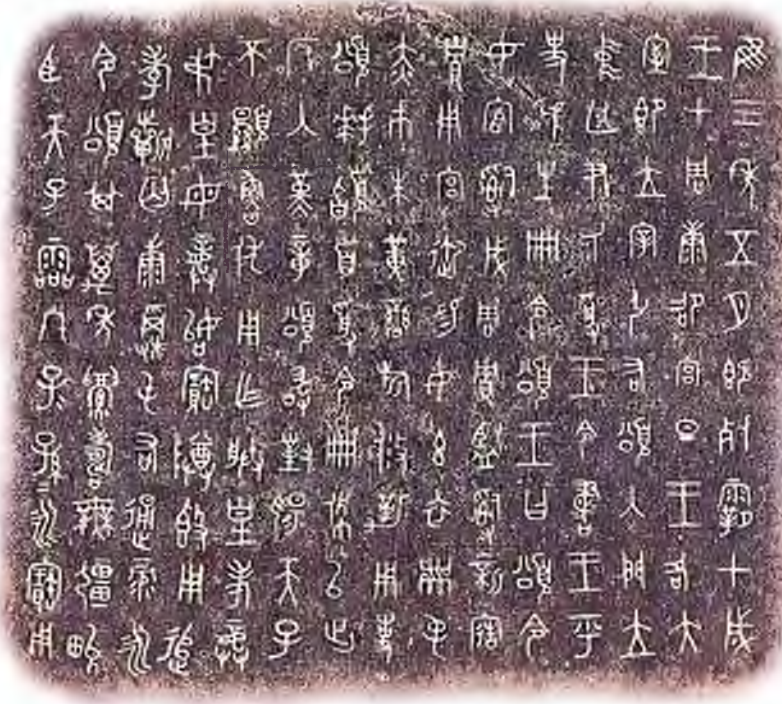 隹三年五月既死霸甲戌
王才周康卲宮旦王各大
室即立宰引右頌入門立
中廷尹氏受王令書王乎
史虢生冊令頌王曰頌令
女官𤔲成周貯監𤔲新造
貯用宮御易女玄衣黹屯
赤巿朱黃䜌旂攸勒用事
頌拜𩒨首受令冊佩以出
反入堇章頌敢對揚天子
不顯魯休用乍朕皇考龏
弔皇母龏始寶尊鼎用追
孝𣄨匄康𠭯屯右通彔永
令頌其萬年眉壽無疆畯
臣天子霝冬子=孫=永寶用